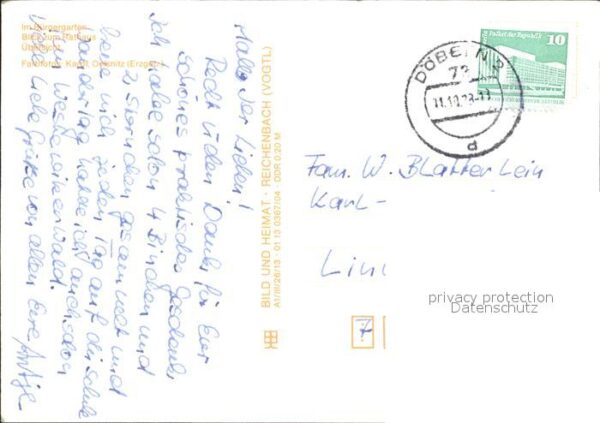 Im Bürgergarten
Blick zum Rathaus
Übersicht
Farbfotos: Karpf, Oelsnitz (Erzgeb.)
Hallo Ihr Lieben!
Recht vielen Dank für Euer
schönes praktisches Geschenk.
Ich habe schon 4 Binchen und
2 Sternchen gesammelt und
freue mich jeden Tag auf die Schule
Wandertag hatte ich auch schon
im Wald.
Viele liebe Grüße von allen Eure Antje
BILD UND HEIMAT · REICHENBACH (VOGTL)
A1/III/26/13 · 01 13 0367/04 · DDR 0,20 M
10
Palast der Republik
DÖBELN 2
73
11.10.78-17
d
Fam. W. Blatterlein
Karl-
7
privacy protection
Datenschutz